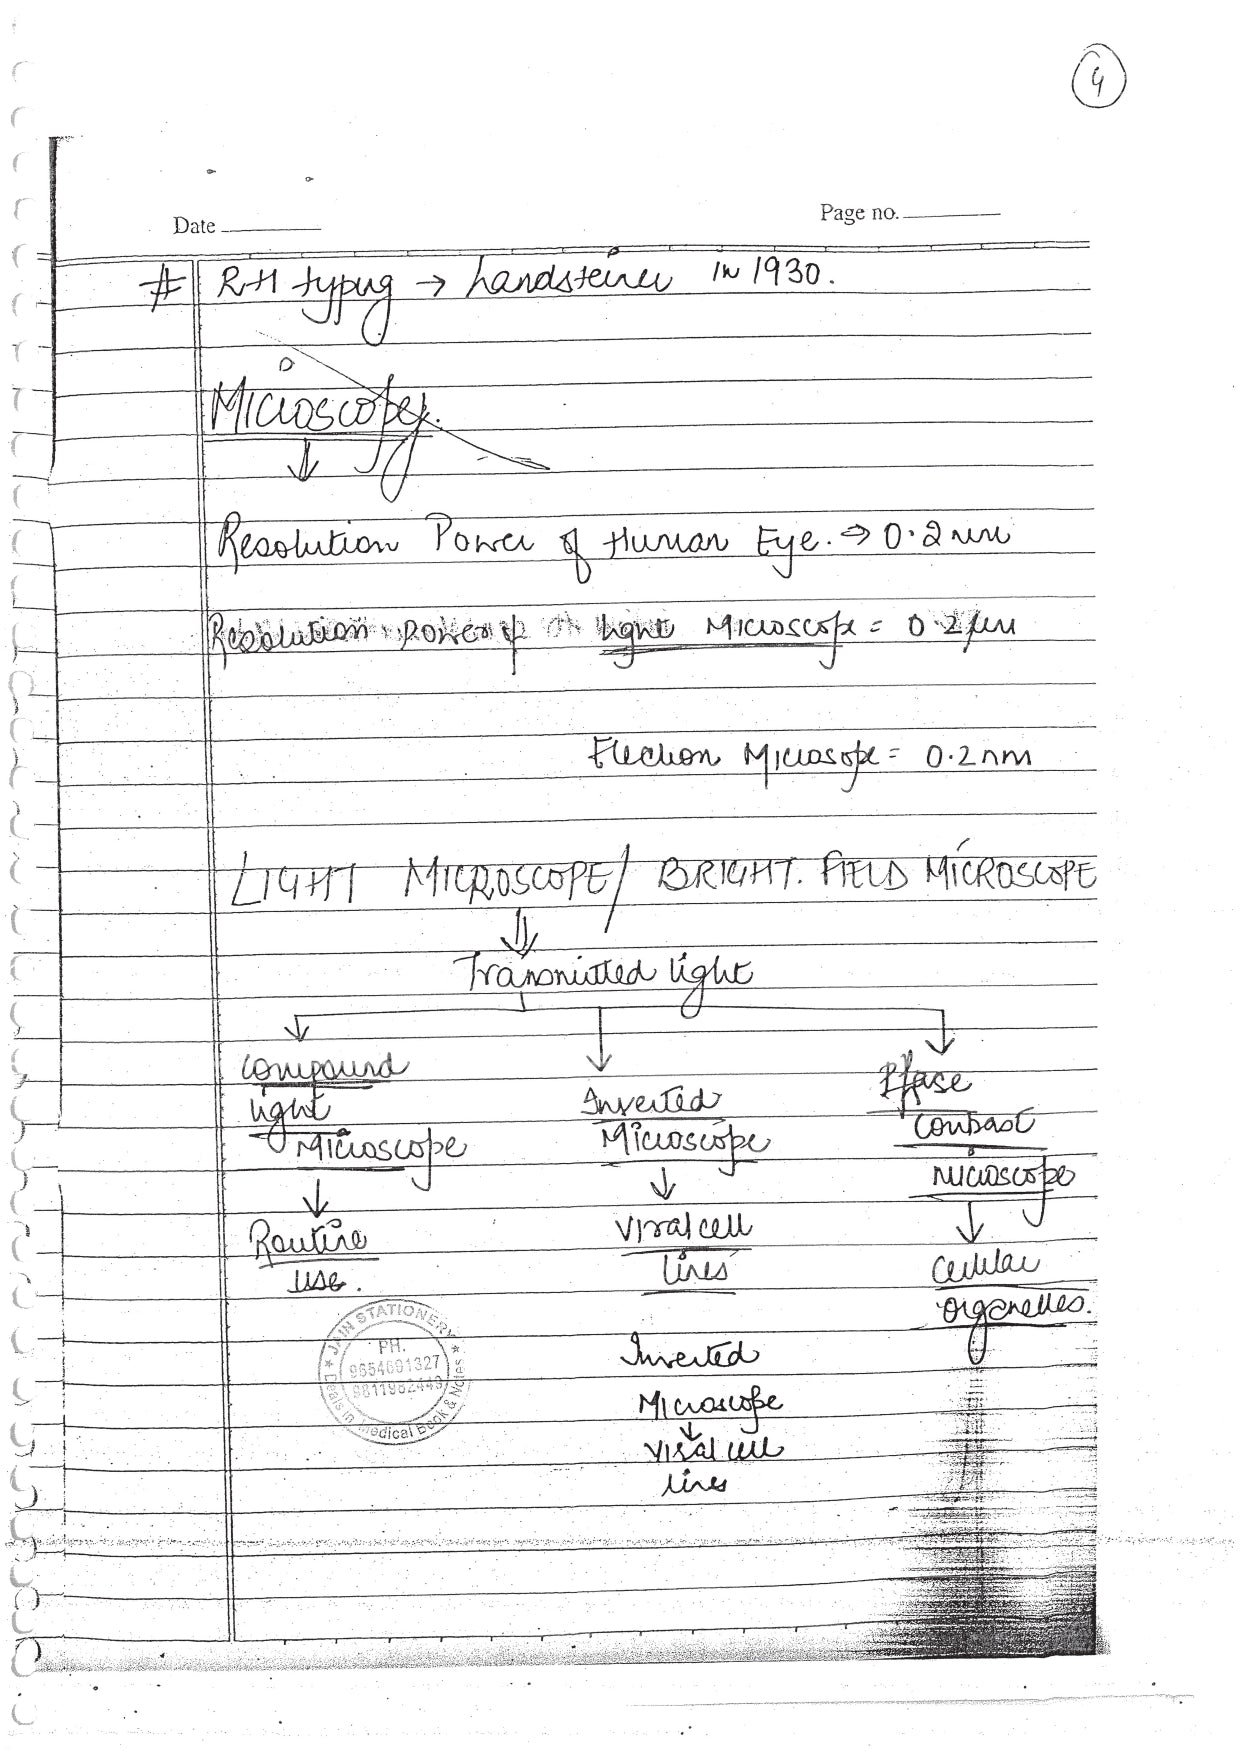 4
Date
Page no.
# RH typing → Landsteiner in 1930.
Microscopy.
↓
Resolution Power of Human Eye. ⇒ 0.2 mm
Resolution Power of light Microscope = 0.2 μm
Electron Microsope = 0.2 nm
LIGHT MICROSCOPE / BRIGHT. FIELD MICROSCOPE
⇓
Transmitted light
Compound
light
Microscope
↓
Routine
use.
Inverted
Microscope
↓
Viral cell
lines
Phase
contrast
Microscope
↓
Cellular
organelles.
JAIN STATIONERY
PH.
9654691327
Deals in Medical Book & Notes
Inverted
Microscope
↓
Viral cell
lines